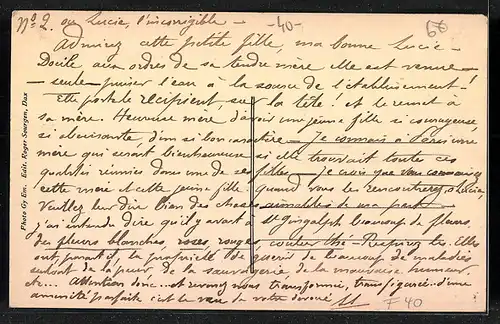 No 2. ou Lucie, l'incorrigible -
-40-
66
Admirez cette petite fille, ma bonne Lucie -
Docile aux ordres de sa tendre mère elle est venue
seule puiser l'eau à la source de l'établissement!
Elle porte le récipient, sur la tête! et le remet à
sa mère. Heureuse mère d'avoir une jeune fille si courageuse,
si obéissante, d'un si bon caractère - Je connais à Paris une
mère qui serait bienheureuse si elle trouvait toutes ces
qualités réunies dans une de ses filles - Je crois que vous connaissez
cette mère et cette jeune fille. Quand vous les rencontrerez, Lucie,
Veuillez leur dire bien des choses aimables de ma part -
J'ai entendu dire qu'il y avait à St Gingolph beaucoup de fleurs,
des fleurs blanches, roses, rouges, Elles
ont, paraît-il, la propriété de guérir de beaucoup de maladies
surtout de la peur, de la sauvagerie, de la mauvaise humeur,
etc... Attention donc.. et revenez nous transformée, transfigurée.. d'une
amenité parfaite c'est le vœu de votre dévoué
F 40
Photo Gy Em. Edit. Roger Sourgen, Dax